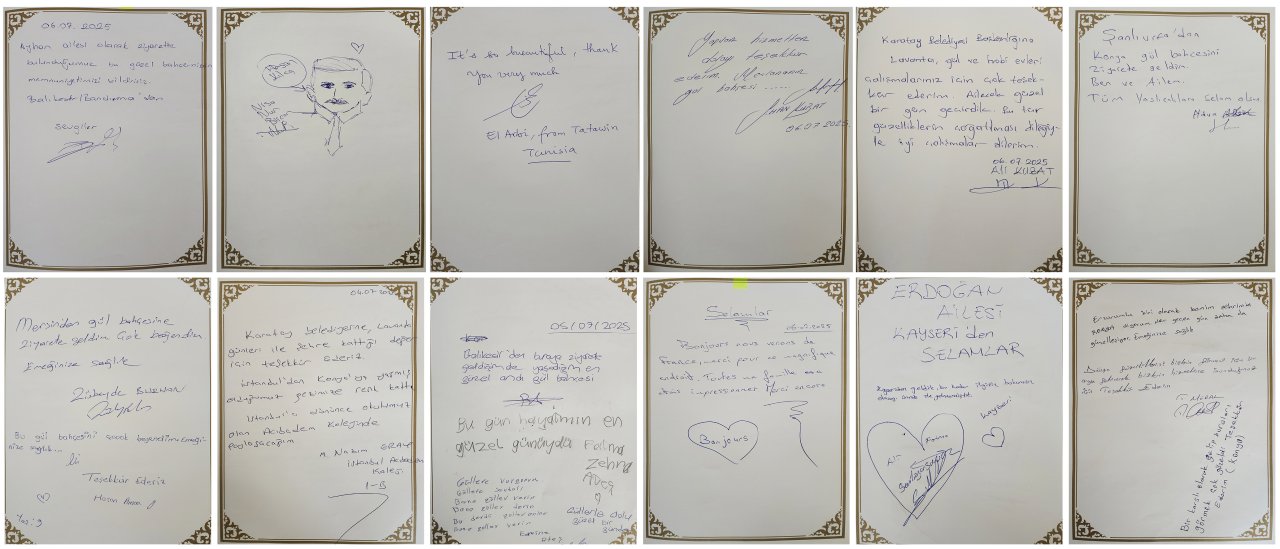 06.07.2025
Ayhan ailesi olarak ziyarette
bulunduğumuz bu güzel bahçenizden
memnuniyetimizi bildiririz.
Balıkesir/Bandırma'dan
sevgiler
It's so beautiful, thank
you very much
El Arbi, from Tataouin
Tunisia
Yapılan hizmetten
dolayı teşekkür
ederim. Mevlananın
gül bahçesi .....
06.07.2025
Karatay Belediyesi Başkanlığına
Lavanta, gül ve hobi evleri
çalışmalarınız için çok teşek-
kür ederim. Ailecek güzel
bir gün geçirdik. Bu tür
güzelliklerin çoğaltılması dileğiy-
le iyi çalışmalar dilerim.
06.07.2025
Ali KUZAT
Şanlıurfa'dan
Konya gül bahçesini
Ziyarete geldim.
Ben ve Ailem.
Tüm Yaslılara Selam olsun
Mersinden gül bahçesine
ziyarete geldim Çok beğendim
Emeğinize sağlık
Zübeyde
Bu gül bahçesini çok beğendim Emeği-
nize sağlık...
Teşekkür Ederiz
Hasan
Yaş: 9
06.07.2025
Karatay belediyerne, Lavanta
günleri ile şehre kattığı değer
için teşekkür ederiz
İstanbul'dan Konya'ya gelmiş
olduğumuz gezimize renk kattı
İstanbul'a dönünce okulumuz
olan Acıbadem Kolejinde
paylaşacağım
M. Nazım
İstanbul Acıbadem
Koleji
1-B
05/07/2025
Balıkesir'den buraya ziyarete
geldiğimde yaşadığım en
güzel andı gül bahçesi
Bu gün hayatımın en
güzel günüydü Fatma
Zehra
Güllere vurgunum
Güllere sevdalı
Bana güller verin
Bana güller derin
Bu derdi
Bana güller verin
Güllerle dolu
güzel bir
gündü
Selamlar
06.07.2025
Bonjours nous venons de
France merci pour ce magnifique
endroit. Toutes ma famille est
etais impressionner Merci encore
Bonjours
ERDOĞAN
AİLESİ
KAYSERİ'den
SELAMLAR
Kayseri
Ali
Fatma
Erzurumlu biri olarak
diyorum her geçen gün daha da
güzelleşiyor Emeğinize sağlık
Teşekkür Ederim
T. Meral
Bir Konyalı olarak gelip buraları
görmek çok güzel Teşekkür
Ederim Konya!